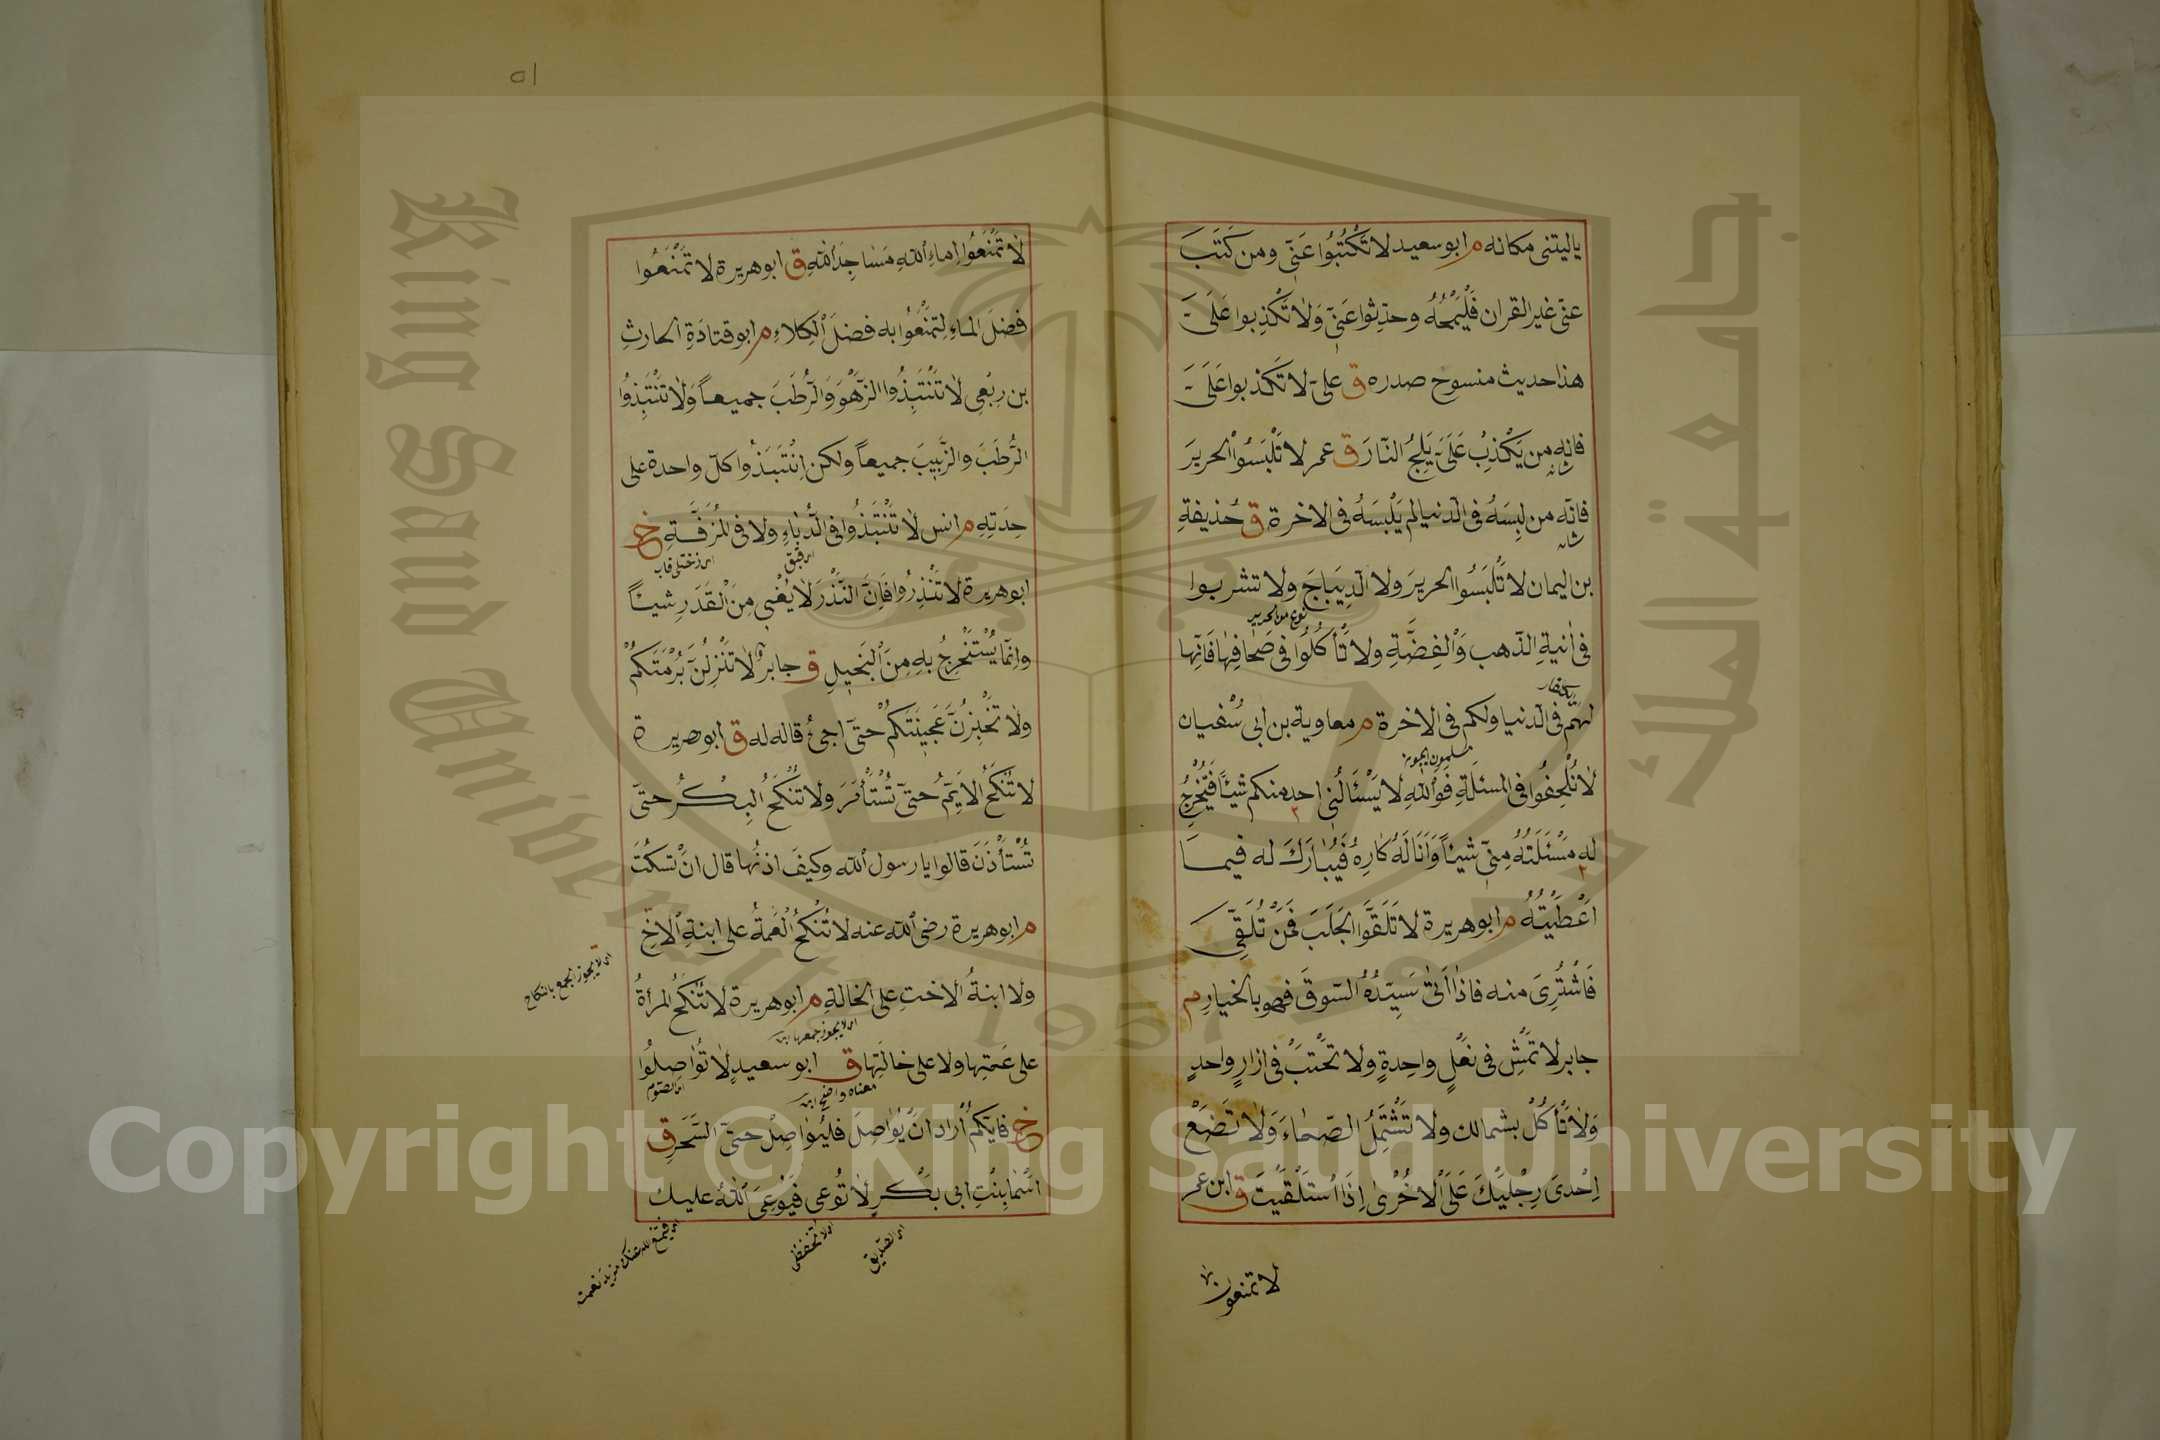 ياليتنى مكانه م ابو سعيد لا تَكْتُبُوا عَنّى ومن كَتَبَ
عنّى غير القران فَلْيَمْحُهُ وحدِّثوا عَنّى وَلَا تَكْذِبوا عَلَىَّ
هذا حديث منسوخ صدره ق علىّ لا تَكذبوا عَلَىَّ
فانه من يَكْذِبْ عَلَىَّ يَلِجُ النّارَ ق عمر لا تَلْبَسُوا الحريرَ
شانه
فانّه من لبِسَهُ فى الدنيا لم يَلْبَسَهُ فى الاخرة ق حُذيفةِ
شانه
بن اليمان لا تَلبَسُوا الحريرَ ولا الدِيبَاجَ ولا تشربوا
نوع من الحرير
فى اٰنيةِ الذّهب وَالْفِضَّةِ ولا تَأكُلُوا فى صَحَافِهَا فَانّها
لهُمْ فى الدنيا ولكم فى الاخرة م معاوية بن ابى سُفيان
لَا تُلْحِفُوا فى المسئلَةِ فَوَاللهِ لا يَسْئَالُنِى احد منكم شيئًا فَتُخْرِجُ
له مَسْئَلَتُهُ مِنّى شيئًا وَانَا لَهُ كَارِهُ فَيُبَارَكَ له فيما
اعْطَيْتُهُ م ابو هريرة لا تَلَقَّوا الجَلَبَ فمَنْ تُلَقّىَ
فَاشْتُرِىَ منه فاذا اَتىٰ سَيِّدُهُ السّوقَ فهو بالخيارِ م
جابر لا تَمْشِ فى نعْلٍ واحِدةٍ ولا تحْتَبْ فى ازارٍ واحدٍ
وَلَا تَأكُلْ بشمالك ولا تَشْتَمِلُ الصّمَّاءَ وَلَا تَضَعْ
اِحْدىَ رِجْلَيكَ عَلَى الْاُخْرىٰ اِذَا اسْتَلْقَيْتَ ق ابن عمر
لا تمنعوا
٥١
لَا تمْنَعُوا اِماءَ اللهِ مَسَاجِدَ اللهِ ق ابو هريرة لا تمْنَعُوا
فضلَ الماءِ لِتمْنَعُوا به فضلَ الكِلاءِ م ابو قتادَةِ الحارثِ
بن رِبْعِى لَا تَنْتَبِذُوا الزّهْوَ وَالرُّطَبَ جميعاً وَلَا تَنْتَبِذُوا
الرُّطَبَ والزّبِيبَ جميعاً ولكن اِنْتَبَذوا كلّ واحدة على
حِدَتِهِ م انس لَا تَنْتَبَذُوا فى الدُّبَاءِ ولا فى المُزَفَّتِ خ
ابو هريرة لا تَنْذِرُوا فَاِنَّ النَّذْرَ لَا يُغْنِى مِنَ الْقَدَرِ شيئاً
وانّما يُسْتَخْرَجُ بهِ مِنَ البَخِيلِ ق جابر لَا تنْزِلُنَّ بُرْمَتَكُمْ
ولَا تَخْبِزُنَّ عَجِينَتَكُمْ حتىّ اجِئُ قاله له ق ابو هريرة
لا تُنْكَحُ الايِّمُ حتىّ تُسْتَأْمَرَ ولا تُنْكَحُ البِكْرُ حتىّ
تُسْتَأْذَنَ قالوا يا رسول الله وكيفَ اذنُها قال انْ تسكُتَ
م ابو هريرة رضى الله عنه لا تُنْكَحُ الْعَمّةُ على ابنةِ الاخِ
اى لا يجوز الجمع بالنكاح
ولا ابنةُ الاختِ على الخالةِ م ابو هريرة لا تُنْكَحُ المرأةُ
اى لا يجوز جمعها
على عَمّتِها ولا على خالَتِها ق ابو سعيدٍ لا تُوَاصِلُوا
معناه واضح
اى الصوم
خ فايّكم اَرادَ انْ يُوَاصِلَ فليُوَاصِلْ حتىّ السَّحَرِ ق
اسْمَا بِنْتِ ابى بَكْرٍ لا تُوْعى فَيُوْعِىَ اللهُ عليك
اى الصديق
اى لا تحفظى